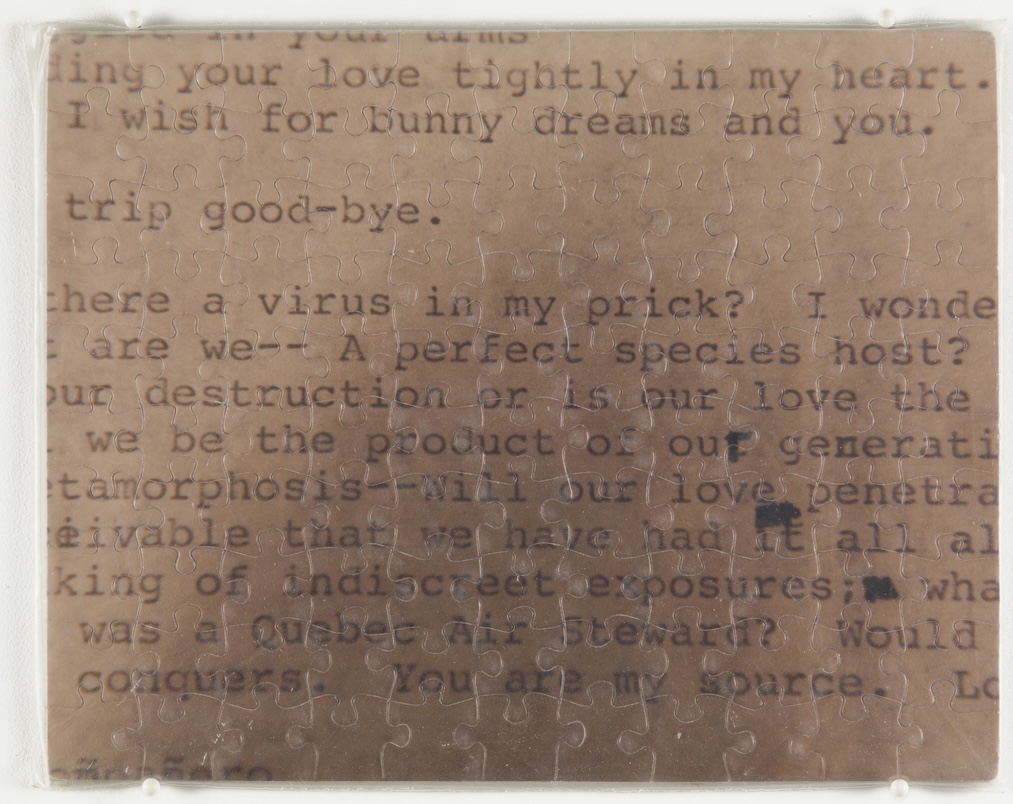 in your arms
ding your love tightly in my heart.
I wish for bunny dreams and you.
trip good-bye.
there a virus in my prick?  I wonde
t are we-- A perfect species host?
our destruction or is our love the
we be the product of our generati
etamorphosis--Will our love penetra
ceivable that we have had it all al
king of indiscreet exposures; wha
was a Quebec Air Steward?  Would
conquers.  You are my source.  Lo